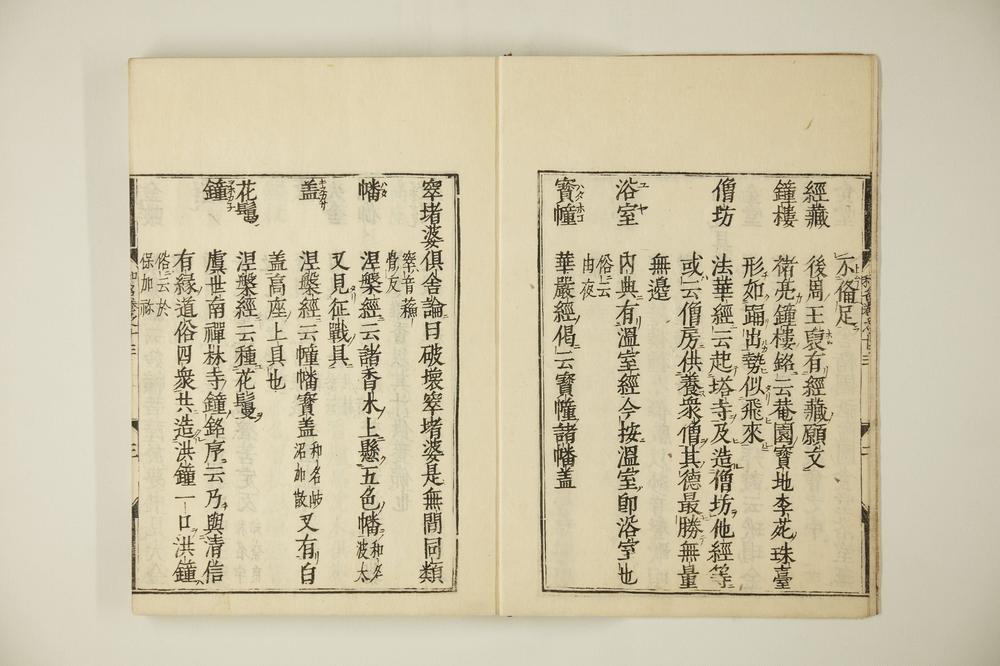 不備足
經藏 後周王襃有經藏願文
鐘樓 衛亮鐘樓銘云菴園寶地李苑珠臺
形如踊出勢似飛來
僧坊 法華經云起塔寺及造僧坊他經等
或云僧房供養衆僧其德最勝無量
無邊
浴室 内典有溫室經今按溫室即浴室也
俗云
由夜
寶幢 華嚴經偈云寶幢諸幡盖
窣堵婆 俱舍論曰破壞窣堵婆是無間同類
窣音蘓
骨反
幡 涅槃經云諸香木上懸五色幡 和名
波太
又見征戰具
盖 涅槃經云幢幡寶盖 和名
又有白
盖高座上具也
花鬘 涅槃經云種花鬘
鐘 虞世南禪林寺鐘銘序云乃與清信
有縁道俗四衆共造洪鐘一口洪鐘
俗云於
保加祢